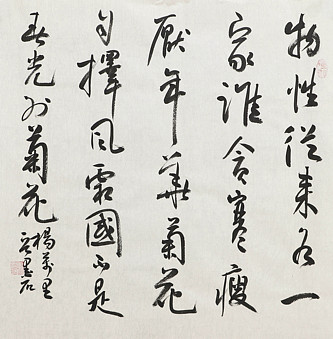 物性從来各一
家誰貪寒瘦
厭年華菊花
自擇風霜國不是
春光外菊花
楊萬里